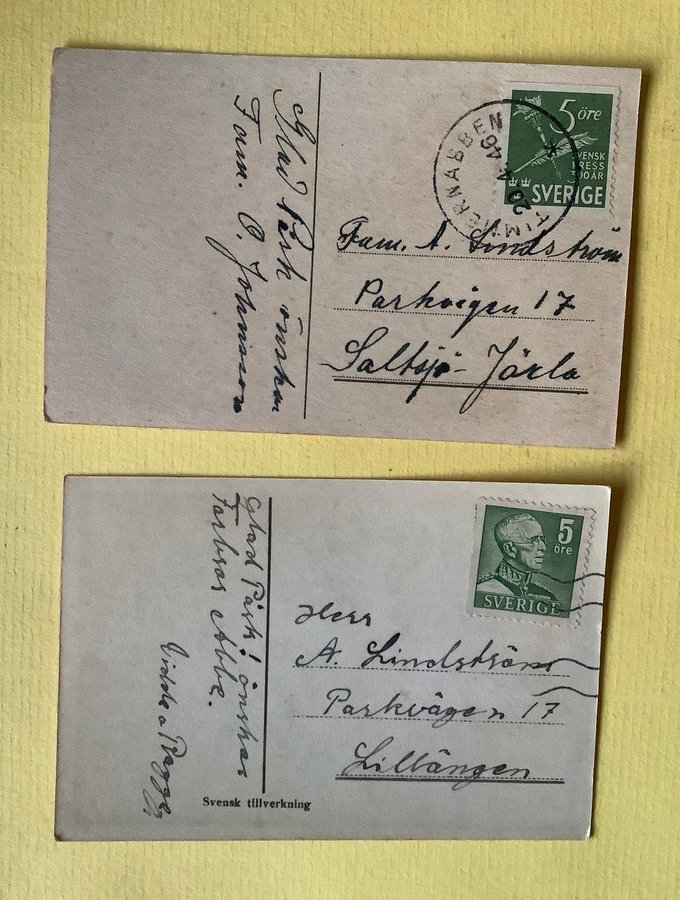 Glad Påsk önskar
Fam. O. Johnsson
5 öre
SVENSK
PRESS
300 ÅR
SVERIGE
TIMMERNABBEN
20 4 46
Fam. A. Lindström
Parkvägen 17
Saltsjö-Järla
Glad Påsk! önskar
Farbror Abbe.
5
öre
SVERIGE
Herr
A. Lindström
Parkvägen 17
Lillängen
Svensk tillverkning